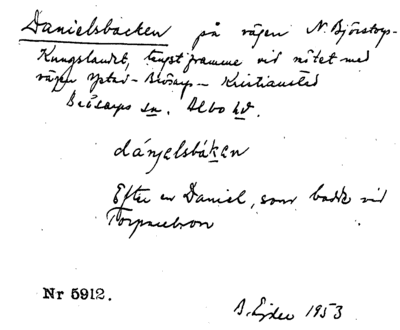 Danielsbacken på vägen N. Björstorp-
Kungslandet, längst framme vid mötet med
vägen Ystad - Brösarp - Kristianstad
Brösarps sn. Albo hd.
dánjelsbákan
Efter en Daniel, som bodde vid
Nr 5912.
B. Ejder 1953